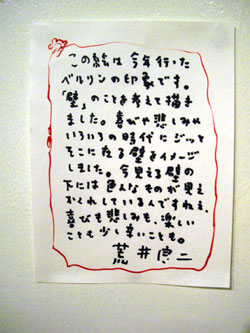 この絵は今年行った
ベルリンの印象です。
「壁」のことを考えて描き
ました。喜びや悲しみや
いろいろの時代にジッと
そこに在る壁をイメージ
しました。今見える壁の
下には色んなものが見え
かくれしているんですねぇ、
喜びも悲しみも、楽しい
ことも少し辛いことも。
荒井良二